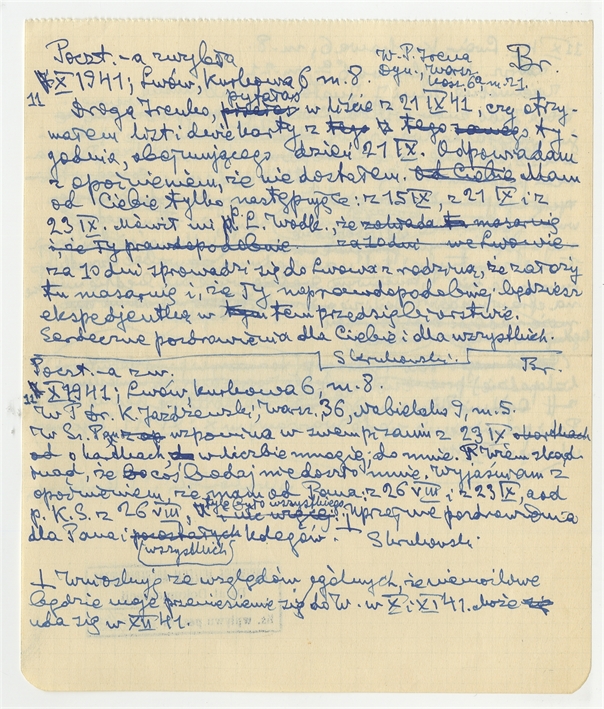 Poczt.-a zwykła
W.P. Irena
Br.
Dyn., Warsz.
X 1941; Lwów, Kurkowa 6 m. 8.
Kosz. 6a m. 21.
11
pytałaś
Droga Irenko, w liście z 21 IX 41, czy otrzy-
małem list i dwie karty z tego ty-
godnia, obejmującego dzień 21 IX. Odpowiadam
z opóźnieniem, że nie dostałem. od Ciebie Mam
od Ciebie tylko następujące: z 15 IX, z 21 IX i z
23 IX. Mówił mi p. L. Wodk., że zakłada tu masarnię
i, że Ty prawdopodobnie za 10 dni we Lwowie
za 10 dni sprowadzi się do Lwowa z rodziną, że założy
tu masarnię i, że Ty najprawdopodobniej będziesz
ekspedjentką w tem przedsiębiorstwie.
Serdeczne pozdrowienia dla Ciebie i dla wszystkich.
Skrukowski.
Br.
Poczt.-a zw.
11 X 1941; Lwów, Kurkowa 6, m. 8.
W.P. Dr. K. Jażdżewski; Warsz. 36, m. 5.
W. Sz. Pan wspomina w swem pisaniu z 23 IX o kartkach
od w liczbie mnogiej do mnie. Wiem skąd-
inąd, że doszło mnie. Wyjaśniam z
opóźnieniem, że mam od Pana: z 26 VIII i z 23 IX, a od
p. K. S. z 26 VIII, tylko wszystkiego
i nic więcej. + Uprzejme pozdrowienia
dla Pana i pozostałych kolegów. Skrukowski.
wszystkich
+ Wnioskuję ze względów ogólnych, że niemożliwe
będzie moje przeniesienie się do W. w X i XI 41. Może się
uda się w XII 41.